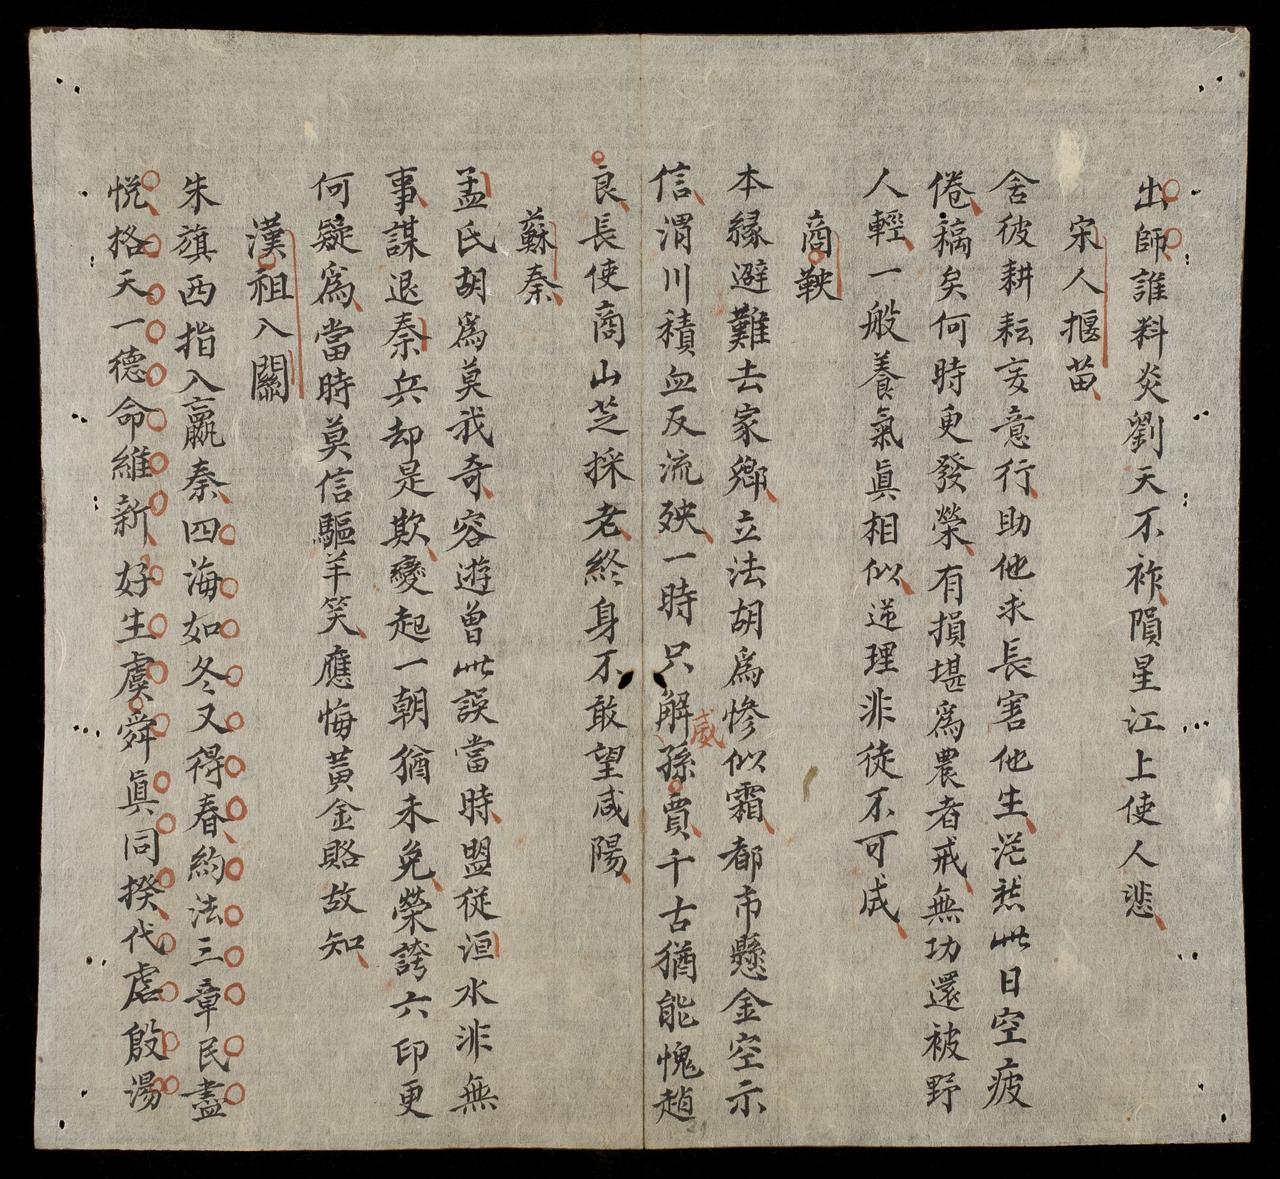 出師誰料炎劉天不祚隕星江上使人悲
宋人揠苗
舍彼耕耘妄意行助他求長害他生茫然此日空疲
倦稿矣何時更發榮有損堪爲農者戒無功還被野
人輕一般養氣眞相似逆理非徒不可成
商鞅
本縁避難去家鄉立法胡爲慘似霜都市懸金空示
信渭川積血反流殃一時只解孫賈千古猶能愧趙
威
良長使商山芝採老終身不敢望咸陽
蘇秦
孟氏胡爲莫我奇容遊曾此誤當時盟從洹水非無
事謀退秦兵却是欺變起一朝猶未免榮誇六印更
何疑爲當時莫信驅羊笑應悔黃金賂故知
漢祖入關
朱旗西指入嬴秦四海如冬又得春約法三章民盡
悦格天一德命維新好生虞舜眞同揆代虐殷湯